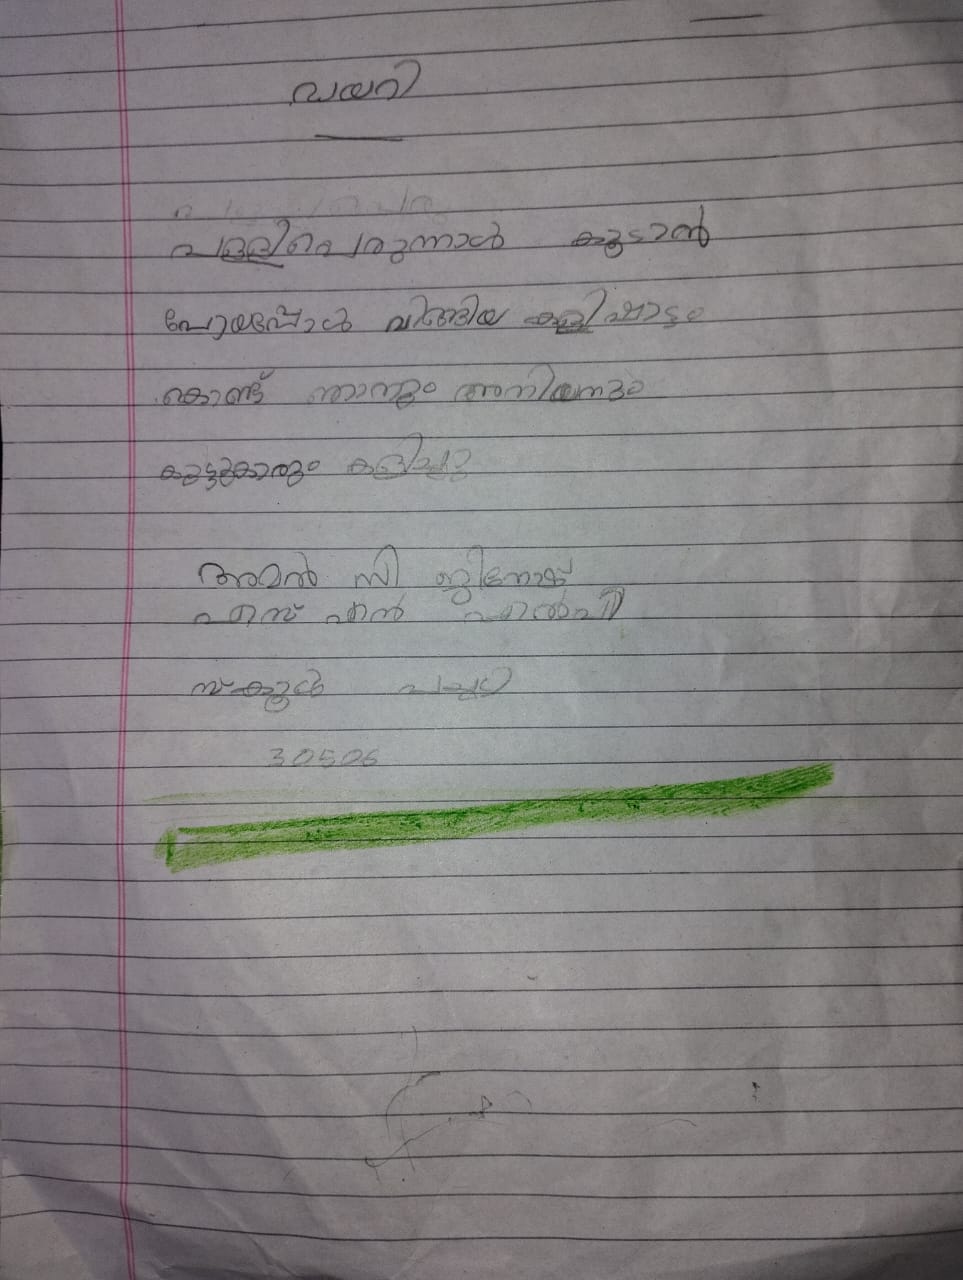 ഡയറി
പള്ളിപെരുന്നാൾ കൂടാൻ
പോയപ്പോൾ വാങ്ങിയ കളിപ്പാട്ടം
കൊണ്ട് ഞാനും അനിയനും
കൂട്ടുകാരും കളിച്ചു
അമൻ സി ജിനോജ്
എസ് എൻ എൽപി
സ്കൂൾ പച്ചടി
30506